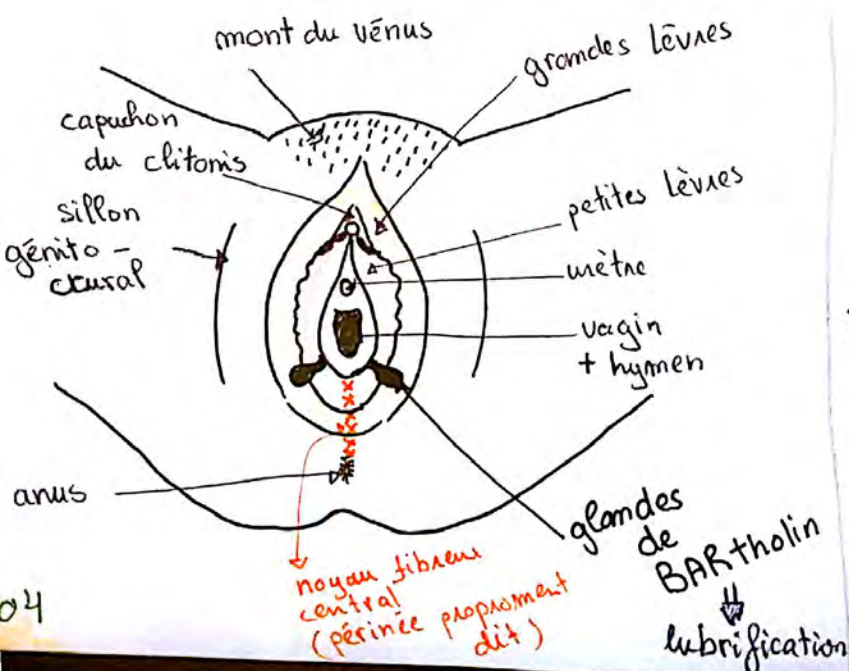 mont du vénus
grandes lèvres
capuchon
du clitoris
sillon
génito-
crural
petites lèvres
urètre
vagin
+ hymen
anus
glandes
de
BARtholin
⇓
lubrification
noyau fibreux
central
(périnée proprement
dit)
04